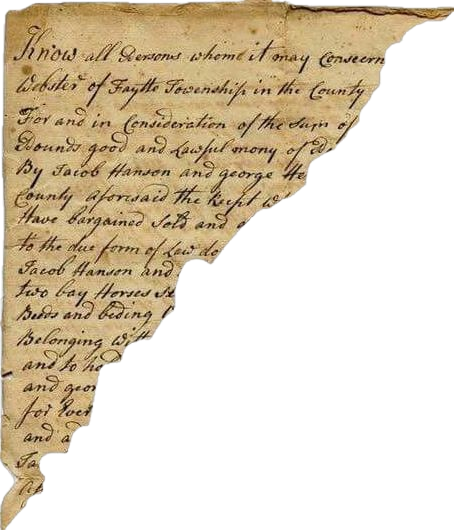 Know all Persons whome it may Conscern
Webster of Faytte Township in the County
For and in Consideration of the Sum of
Pounds good and Lawful mony of
By Jacob Hanson and george
County aforesaid the Recpt
Have bargained Sold and
to the due form of Law do
Jacob Hanson and
two bay Horses
Beds and beding
Belonging with
and to
and
for Ever
and